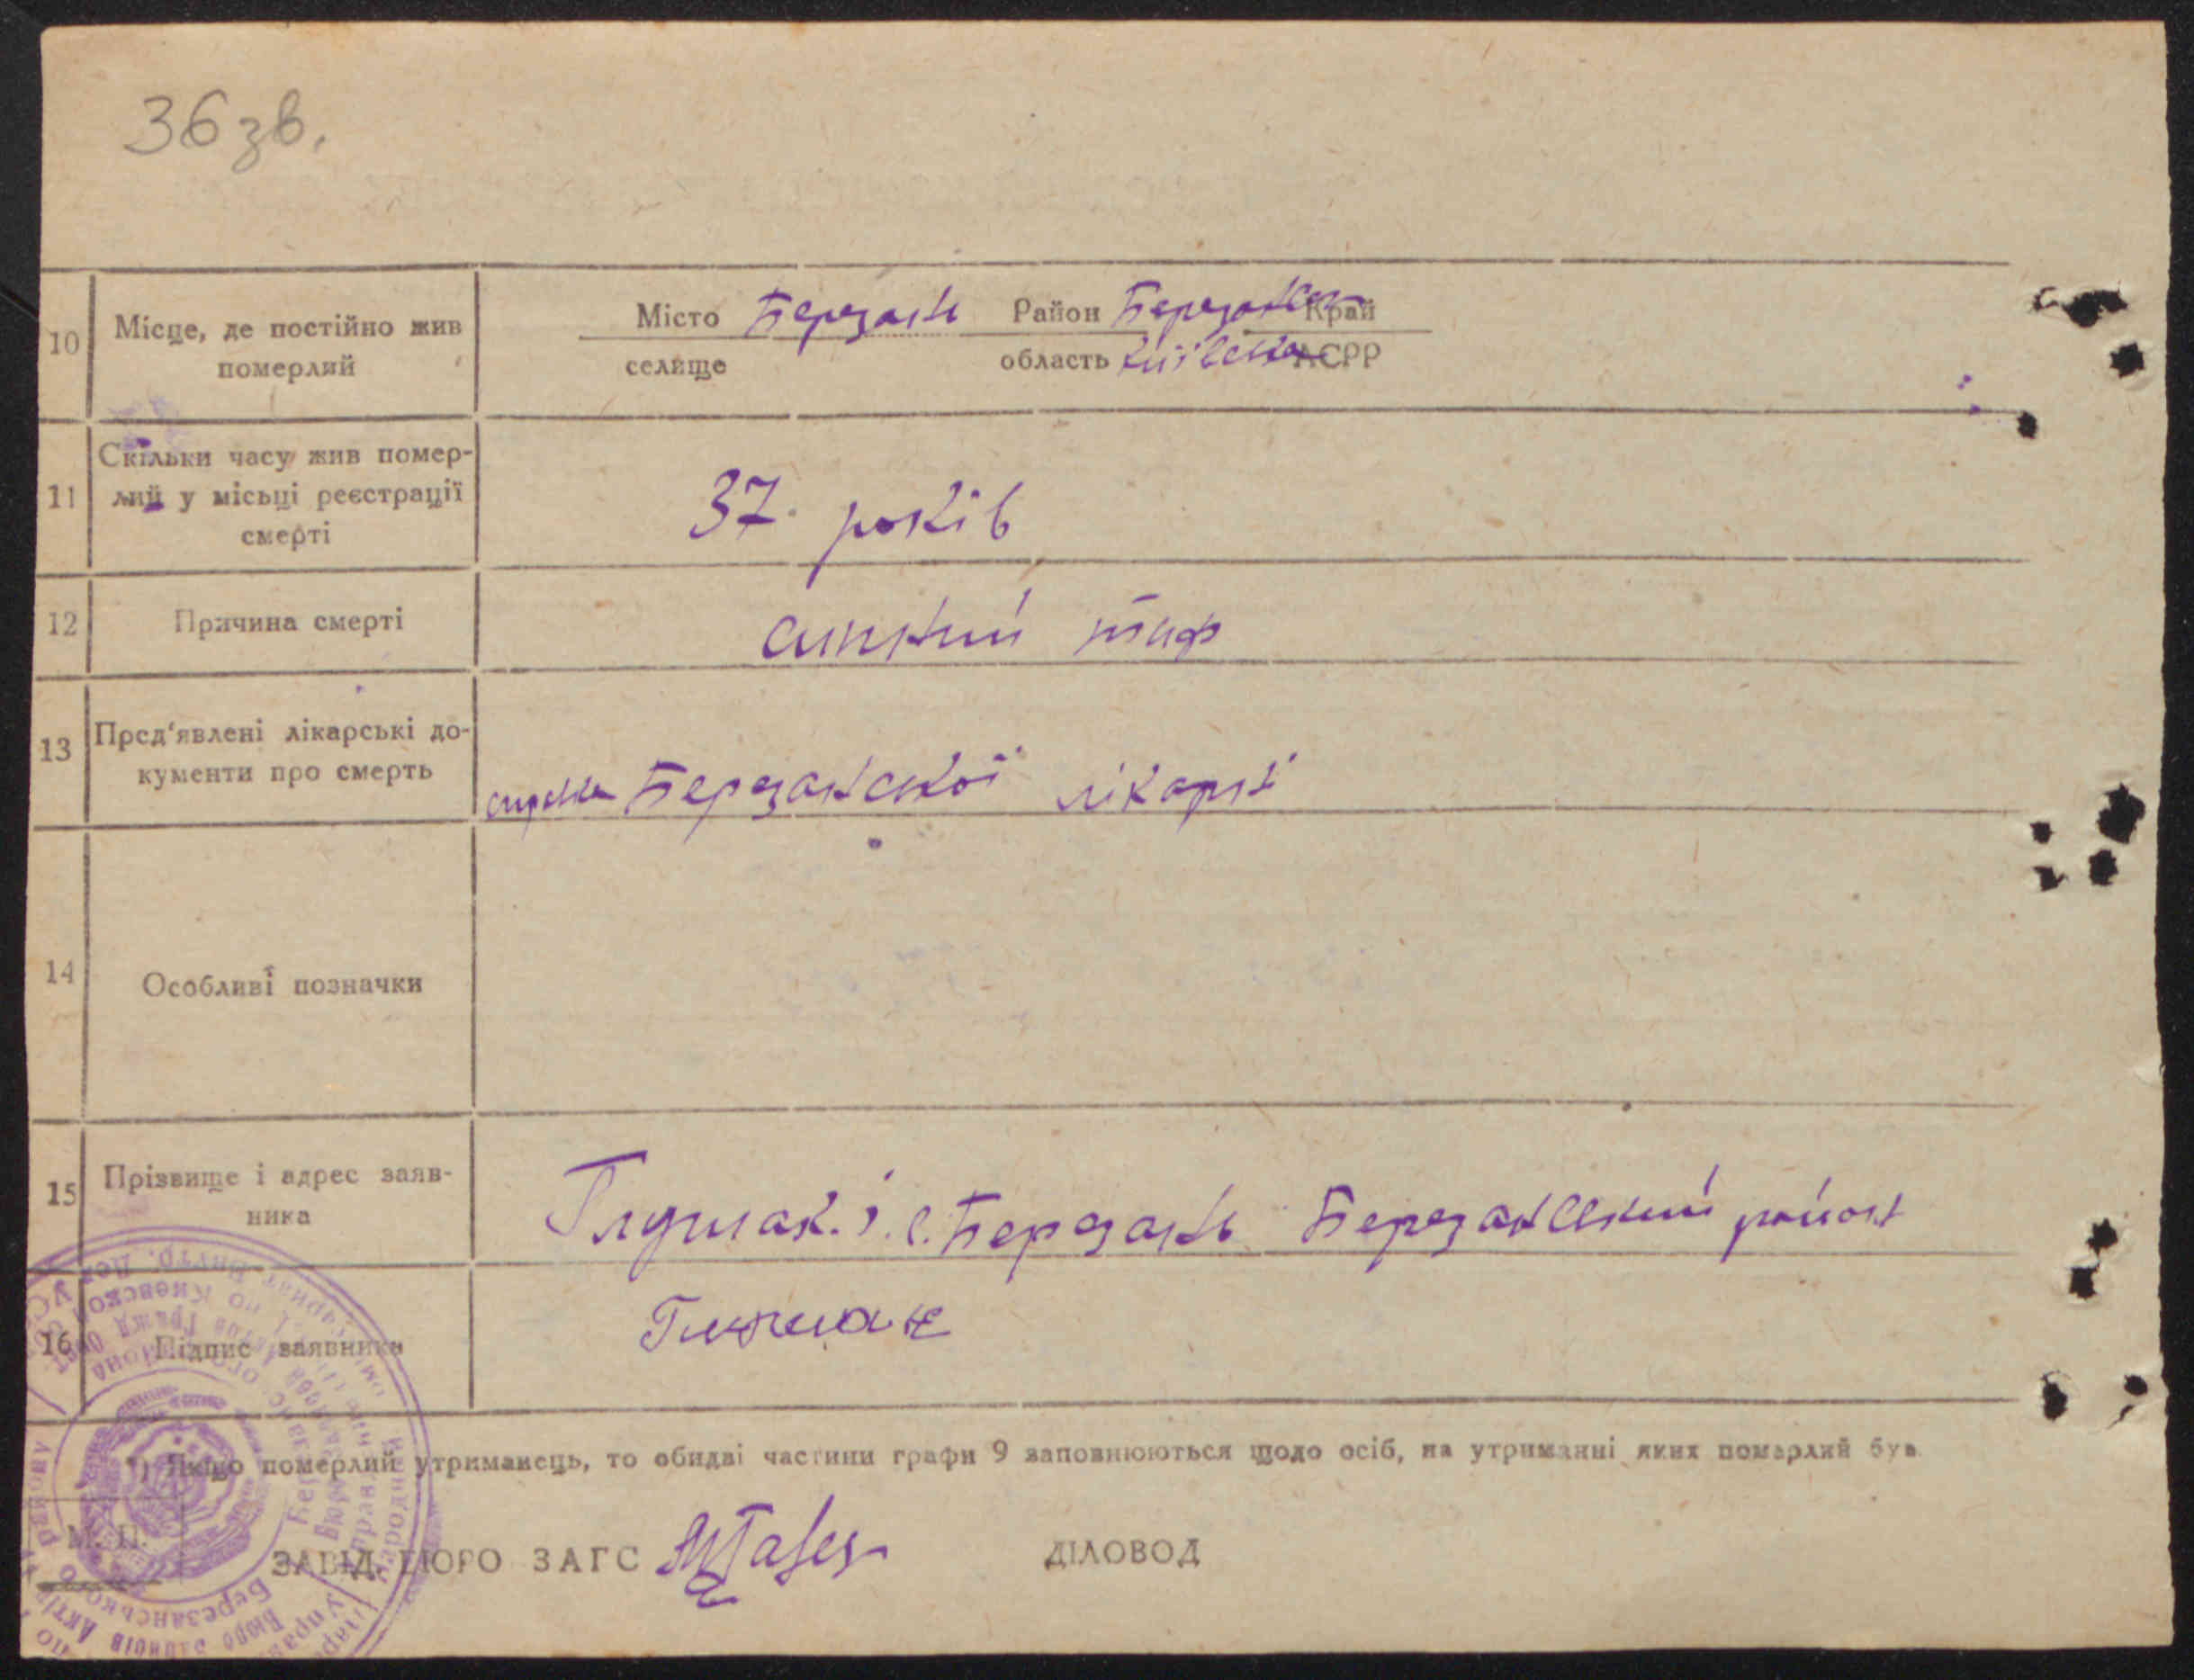 36 зв.
10 Місце, де постійно жив померлий
Місто Березань Район Березанськ Край
селище область Київська АСРР
11 Скільки часу жив помер-
лий у місьці реєстрації
смерті
37 років
12 Причина смерті
сипний тиф
13 Пред'явлені лікарські до-
кументи про смерть
справка Березанської лікарні
14 Особливі позначки
15 Прізвище і адрес заяв-
ника
Глушак. І. с. Березань Березанський район
16 Підпис заявника
Глушак
*) Якщо померлий утриманець, то обидві частини графи 9 заповнюються щодо осіб, на утриманні яких померлий був
М. П.
ЗАВІД. БЮРО ЗАГС
ДІЛОВОД